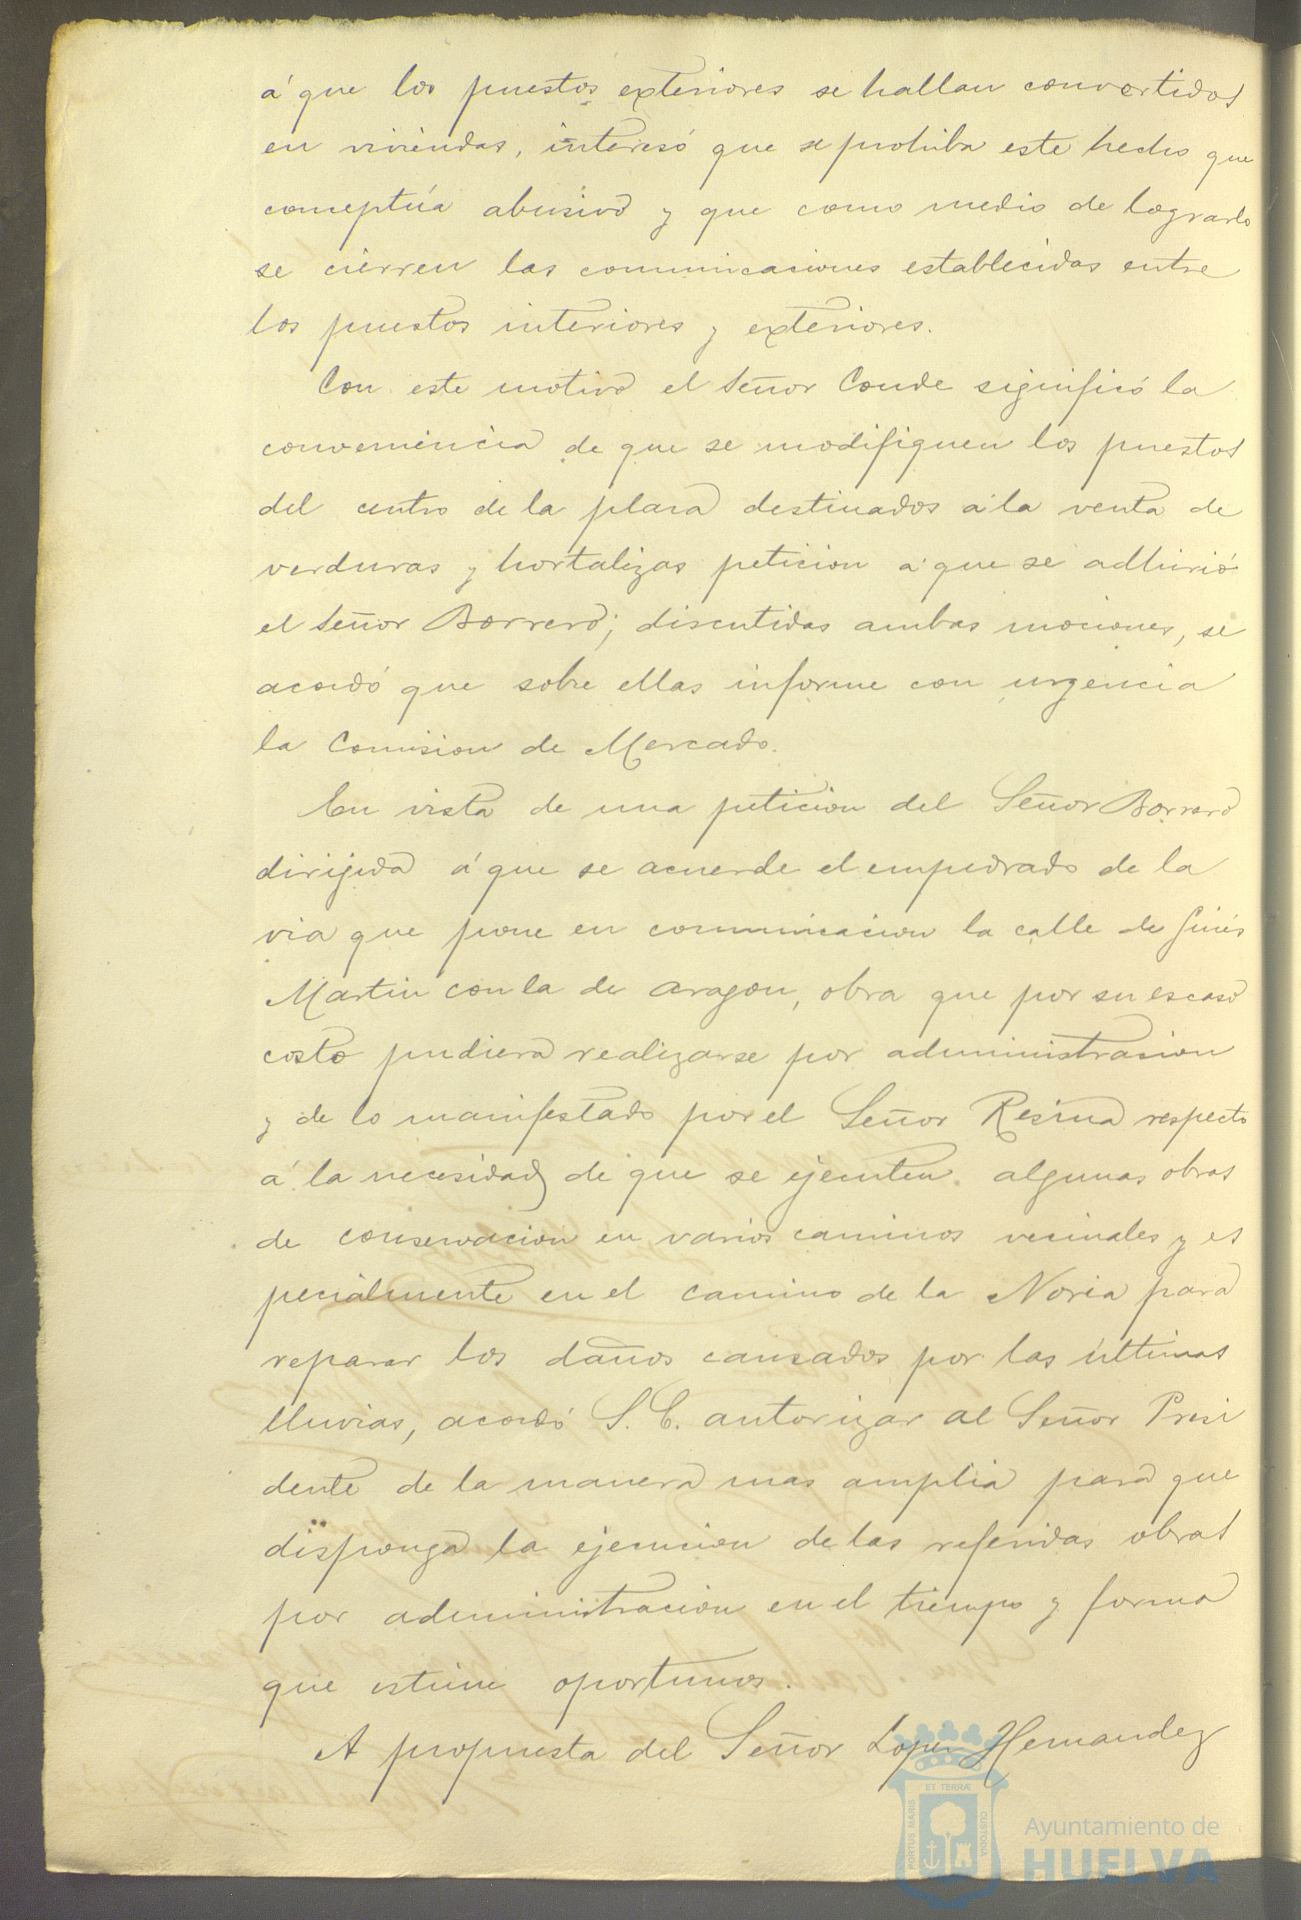 á que los puestos exteriores se hallan convertidos
en viviendas, interesó que se prohiba este hecho que
conceptúa abusivo y que como medio de lograrlo
se cierren las comunicaciones establecidas entre
los puestos interiores y exteriores.
Con este motivo el Señor Conde significó la
conveniencia de que se modifiquen los puestos
del centro de la plaza destinados á la venta de
verduras y hortalizas peticion á que se adhirió
el Señor Borrero; discutidas ambas mociones, se
acordó que sobre ellas informe con urgencia
la Comision de Mercado.
En vista de una peticion del Señor Borrero
dirijida á que se acuerde el empedrado de la
via que pone en comunicacion la calle de Ginés
Martin con la de Aragon, obra que por su escaso
costo pudiera realizarse por administracion
y de lo manifestado por el Señor Resina respecto
á la necesidad de que se ejecuten algunas obras
de conservacion en varios caminos vecinales y es
pecialmente en el camino de la Noria para
reparar los daños causados por las últimas
lluvias, acordó S.E. autorizar al Señor Presi
dente de la manera mas amplia para que
disponga la ejecucion de las referidas obras
por administracion en el tiempo y forma
que estime oportunos.
A propuesta del Señor Lopez Hernandez
PORTUS MARIS
ET TERRÆ
CUSTODIA
Ayuntamiento de
HUELVA